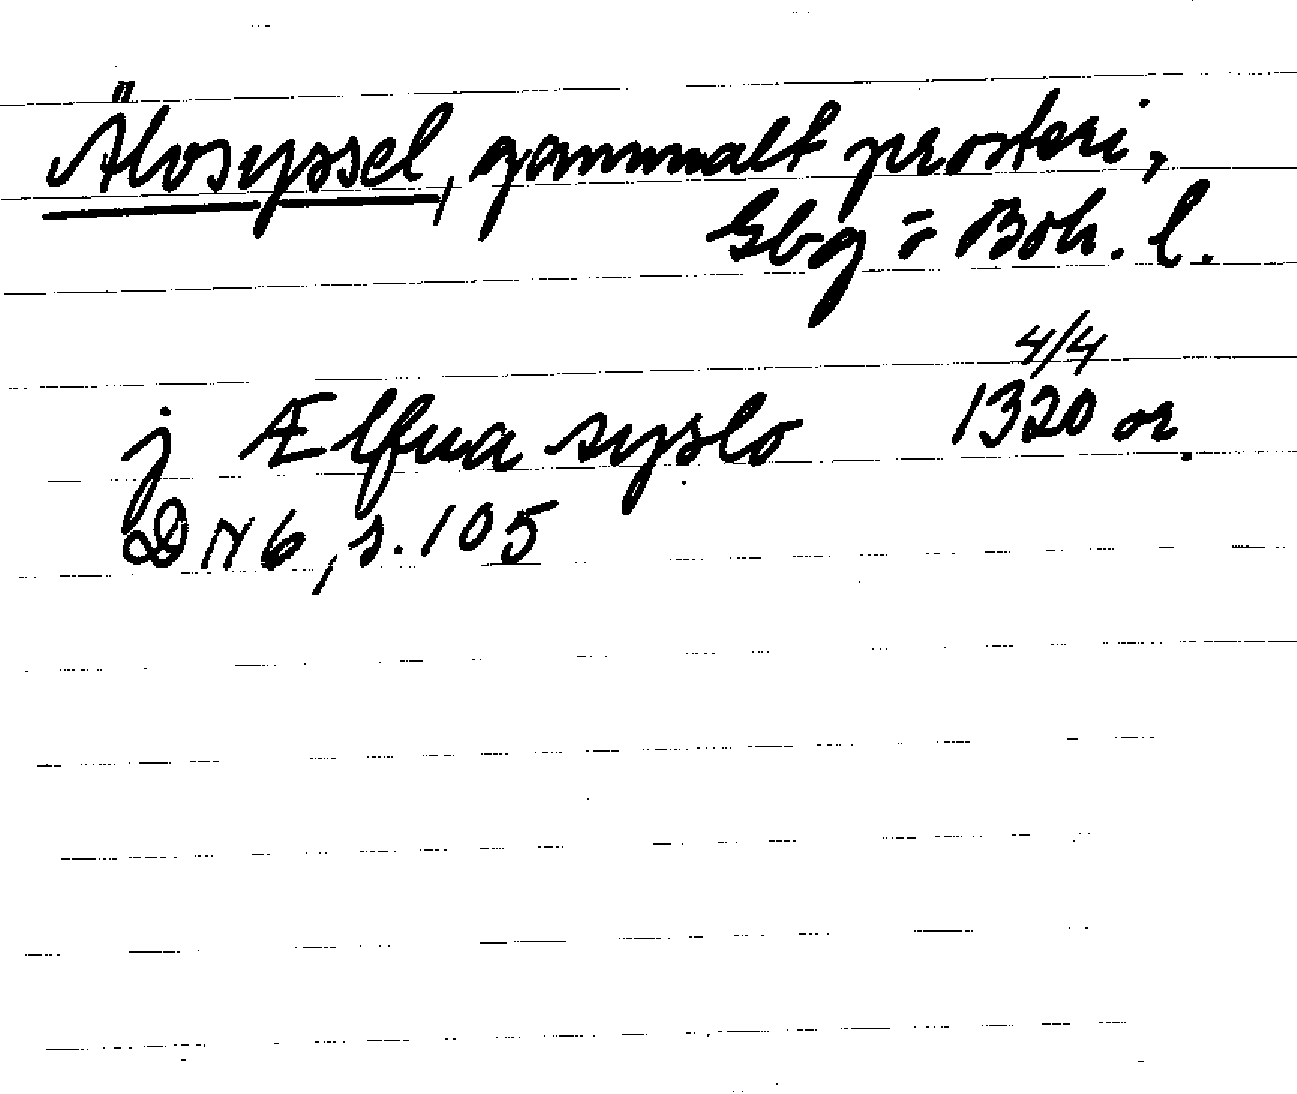 Älvsyssel, gammalt prosteri,
Gbg = Boh. l.
j Ælfua syslo 1320 4/4 or.
DN 6, s. 105